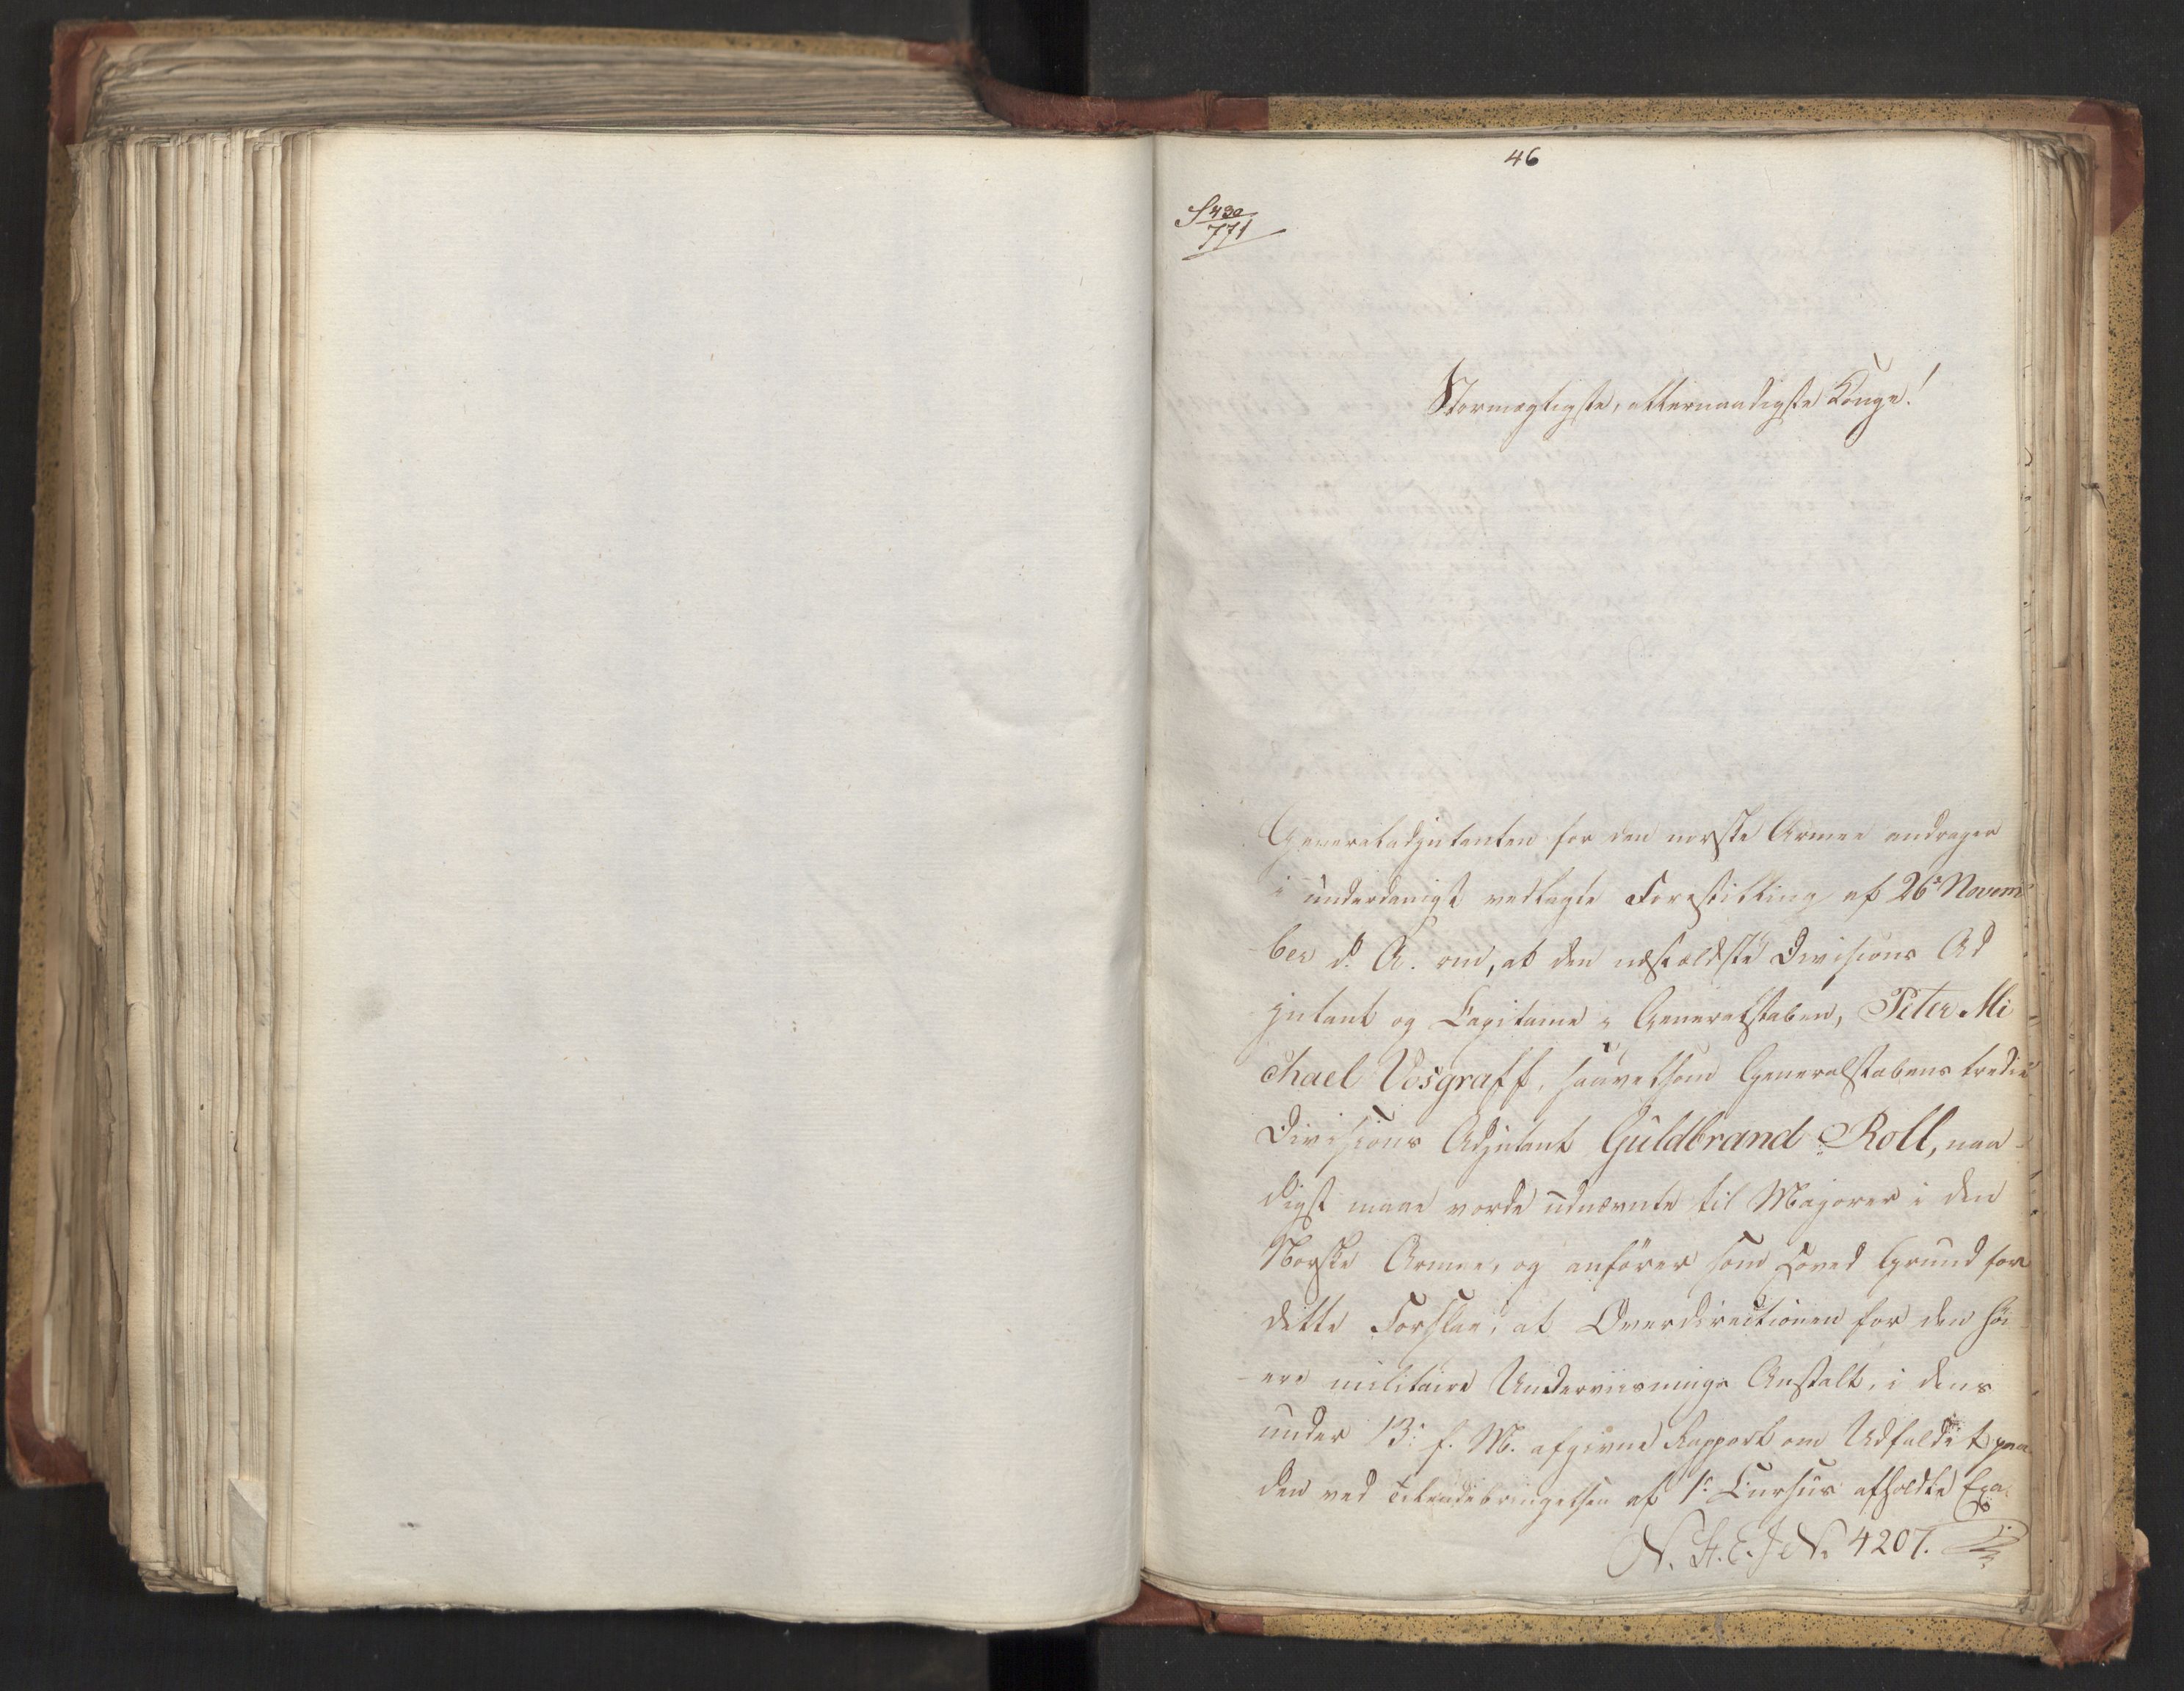 46
S 430
771
Stormægtigste, allernaadigste Konge!
Generaladjutanten for den norske Armee andrager
i underdanigst vedlagte Forestilling af 26de Novem
ber d. A. om, at den næstældste Divisions Ad
jutant og Capitaine i Generalstaben, Peter Mi
chael Vosgraff, saavelsom Generalstabens tredie
Divisions Adjutant Guldbrand Roll, naa-
digst maae vorde udnævnte til Majorer i den
Norske Armee, og anförer som Hoved Grund for
dette Forslag, at Overdirectionen for den höi
-ere militaire Underviisnings Anstalt, i dens
under 13: f. M. afgivne Rapport om Udfaldet paa
den ved Tilendebringelsen af 1: Cursus afholdte Exa-
N. St. E. J No 4207.